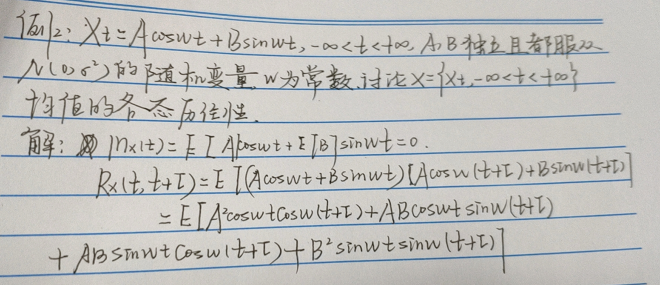 例2: Xt=Acoswt+Bsinwt, -∞<t<+∞, A,B独立且都服从
N(0,σ²)的随机变量, w为常数,讨论X={Xt,-∞<t<+∞}
均值的各态历经性.
解: mx(t)=E[A]coswt+E[B]sinwt=0.
Rx(t,t+τ)=E[(Acoswt+Bsinwt)[Acosw(t+τ)+Bsinw(t+τ)]
=E[A²coswtcosw(t+τ)+ABcoswtsinw(t+τ)
+ABsinwtcosw(t+τ)+B²sinwtsinw(t+τ)]